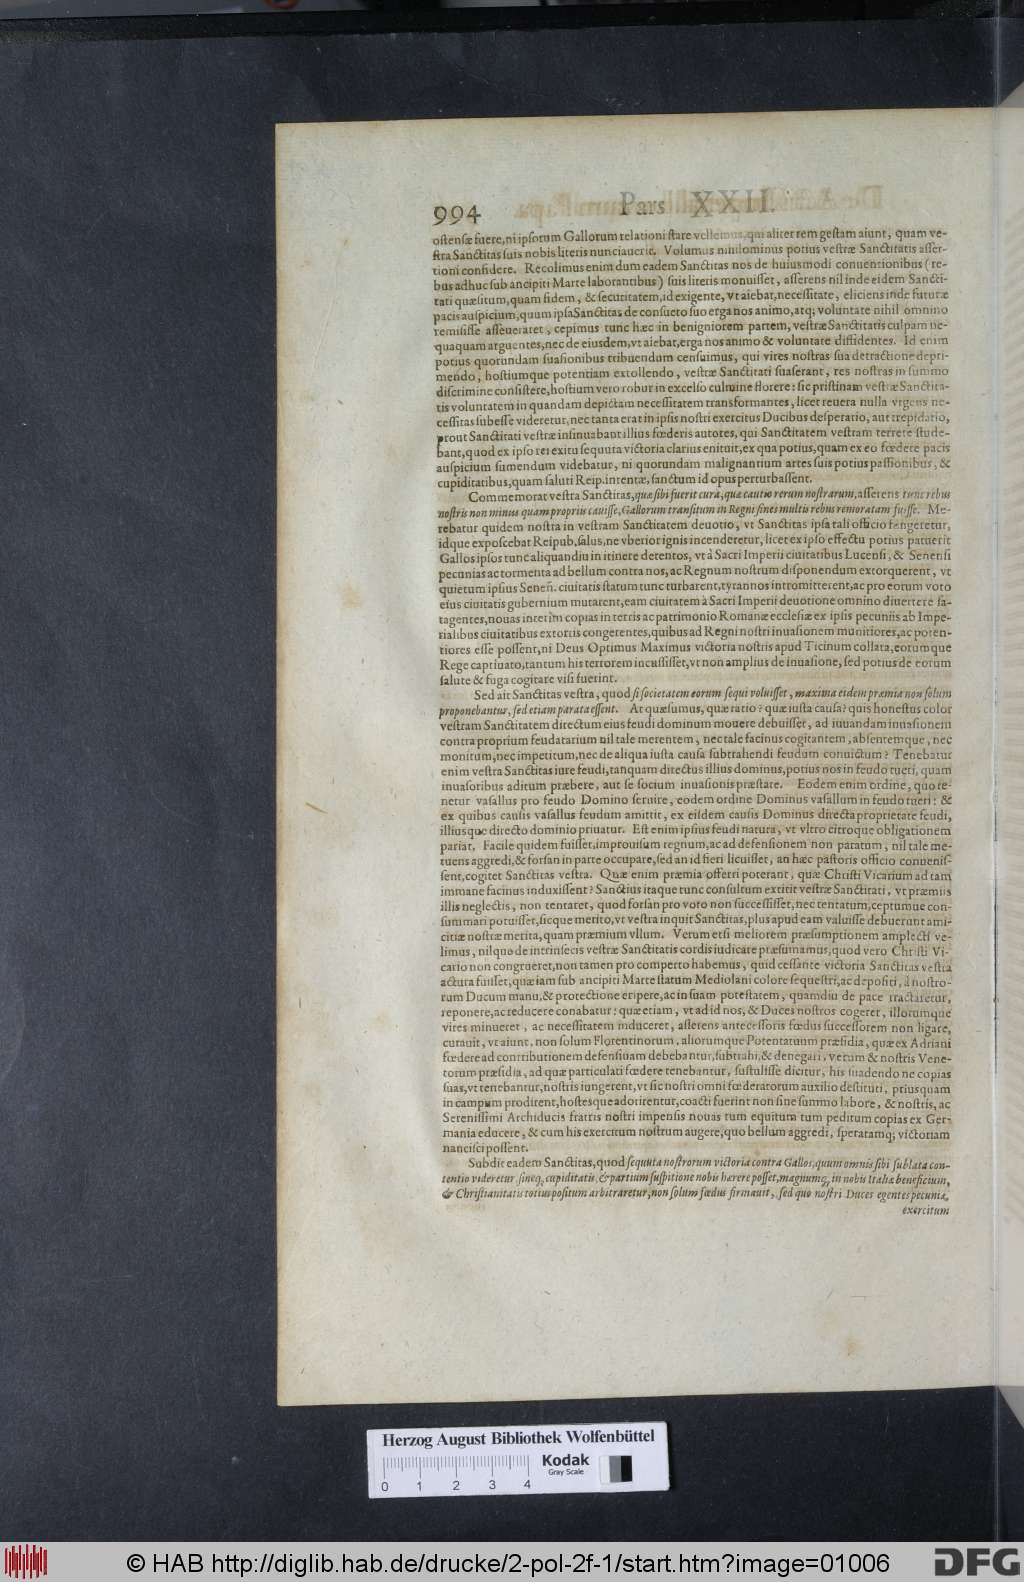 994 Pars XXII.
ostensæ fuere, ni ipsorum Gallorum relationi stare vellemus, qui aliter rem gestam aiunt, quam ve-
stra Sanctitas suis nobis literis nunciauerit. Volumus nihilominus potius vestræ Sanctitatis asser-
tioni confidere. Recolimus enim dum eadem Sanctitas nos de huiusmodi conuentionibus (re-
bus adhuc sub ancipiti Marte laborantibus) suis literis monuisset, asserens nil inde eidem Sancti-
tati quæsitum, quam fidem, & securitatem, id exigente, vt aiebat, necessitate, eliciens inde futuræ
pacis auspicium, quum ipsa Sanctitas de consueto suo erga nos animo, atq; voluntate nihil omnino
remisisse asseueraret, cepimus tunc hæc in benigniorem partem, vestræ Sanctitatis culpam ne-
quaquam arguentes, nec de eiusdem, vt aiebat, erga nos animo & voluntate diffidentes. Id enim
potius quorundam suasionibus tribuendum censuimus, qui vires nostras sua detractione depri-
mendo, hostiumque potentiam extollendo, vestræ Sanctitati suaserant, res nostras in summo
discrimine consistere, hostium vero robur in excelso culmine florere: sic pristinam vestræ Sanctita-
tis voluntatem in quandam depictam necessitatem transformantes, licet reuera nulla vrgens ne-
cessitas subesse videretur, nec tanta erat in ipsis nostri exercitus Ducibus desperatio, aut trepidatio,
prout Sanctitati vestræ insinuabant illius fœderis autores, qui Sanctitatem vestram terrere stude-
bant, quod ex ipso rei exitu sequuta victoria clarius enituit, ex qua potius, quam ex eo fœdere pacis
auspicium sumendum videbatur, ni quorundam malignantium artes suis potius passionibus, &
cupiditatibus, quam saluti Reip. intentæ, sanctum id opus perturbassent.
Commemorat vestra Sanctitas, quæ sibi fuerit cura, quæ cautio rerum nostrarum, asserens tunc rebus
nostris non minus quam propriis cauisse, Gallorum transitum in Regni fines multis rebus remoratam fuisse. Me-
rebatur quidem nostra in vestram Sanctitatem deuotio, vt Sanctitas ipsa tali officio fungeretur,
idque exposcebat Reipub. salus, ne vberior ignis incenderetur, licet ex ipso effectu potius patuerit
Gallos ipsos tunc aliquandiu in itinere detentos, vt à Sacri Imperii ciuitatibus Lucensi, & Senensi
pecunias ac tormenta ad bellum contra nos, ac Regnum nostrum disponendum extorquerent, vt
quietum ipsius Senen̄. ciuitatis statum tunc turbarent, tyrannos intromitterent, ac pro eorum voto
eius ciuitatis gubernium mutarent, eam ciuitatem à Sacri Imperii deuotione omnino diuertere sa-
tagentes, nouas interim copias in terris ac patrimonio Romanæ ecclesiæ ex ipsis pecuniis ab Impe-
rialibus ciuitatibus extortis congerentes, quibus ad Regni nostri inuasionem munitiores, ac poten-
tiores esse possent, ni Deus Optimus Maximus victoria nostris apud Ticinum collata, eorumque
Rege captiuato, tantum his terrorem incussisset, vt non amplius de inuasione, sed potius de eorum
salute & fuga cogitare visi fuerint.
Sed ait Sanctitas vestra, quod si societatem eorum sequi voluisset, maxima eidem præmia non solum
proponebantur, sed etiam parata essent. At quæsumus, quæ ratio? quæ iusta causa? quis honestus color
vestram Sanctitatem directum eius feudi dominum mouere debuisset, ad iuuandam inuasionem
contra proprium feudatarium nil tale merentem, nec tale facinus cogitantem, absentemque, nec
monitum, nec impetitum, nec de aliqua iusta causa subtrahendi feudum conuictum? Tenebatur
enim vestra Sanctitas iure feudi, tanquam directus illius dominus, potius nos in feudo tueri, quam
inuasoribus aditum præbere, aut se socium inuasionis præstare. Eodem enim ordine, quo te-
netur vasallus pro feudo Domino seruire, eodem ordine Dominus vasallum in feudo tueri: &
ex quibus causis vasallus feudum amittit, ex eisdem causis Dominus directa proprietate feudi,
illiusque directo dominio priuatur. Est enim ipsius feudi natura, vt vltro citroque obligationem
pariat. Facile quidem fuisset, improuisum regnum, ac ad defensionem non paratum, nil tale me-
tuens aggredi, & forsan in parte occupare, sed an id fieri licuisset, an hæc pastoris officio conuenis-
sent, cogitet Sanctitas vestra. Quæ enim præmia offerri poterant, quæ Christi Vicarium ad tam
immane facinus induxissent? Sanctius itaque tunc consultum extitit vestræ Sanctitati, vt præmiis
illis neglectis, non tentaret, quod forsan pro voto non successisset, nec tentatum, ceptumue con-
summari potuisset, sicque merito, vt vestra inquit Sanctitas, plus apud eam valuisse debuerunt ami-
citiæ nostræ merita, quam præmium vllum. Verum etsi meliorem præsumptionem amplecti ve-
limus, nil quo de intrinsecis vestræ Sanctitatis cordis iudicare præsumamus, quod vero Christi Vi-
cario non congrueret, non tamen pro comperto habemus, quid cessante victoria Sanctitas vestra
actura fuisset, quæ iam sub ancipiti Marte statum Mediolani colore sequestri, ac depositi, à nostro-
rum Ducum manu, & protectione eripere, ac in suam potestatem, quamdiu de pace tractaretur,
reponere, ac reducere conabatur: quæ etiam, vt ad id nos, & Duces nostros cogeret, illorumque
vires minueret, ac necessitatem induceret, asserens antecessoris fœdus successorem non ligare,
curauit, vt aiunt, non solum Florentinorum, aliorumque Potentatuum præsidia, quæ ex Adriani
fœdere ad contributionem defensiuam debebantur, subtrahi, & denegari, verum & nostris Vene-
torum præsidia, ad quæ particulati fœdere tenebantur, sustulisse dicitur, his suadendo ne copias
suas, vt tenebantur, nostris iungerent, vt sic nostri omni fœderatorum auxilio destituti, priusquam
in campum prodirent, hostesque adorirentur, coacti fuerint non sine summo labore, & nostris, ac
Serenissimi Archiducis fratris nostri impensis nouas tum equitum tum peditum copias ex Ger-
mania educere, & cum his exercitum nostrum augere, quo bellum aggredi, speratamq; victoriam
nancisci possent.
Subdit eadem Sanctitas, quod sequuta nostrorum victoria contra Gallos, quum omnis sibi sublata con-
tentio videretur, sineq; cupiditatis, & partium suspitione nobis hærere posset, magnumq; in nobis Italiæ beneficium,
& Christianitatis totius positum arbitraretur, non solum fœdus firmauit, sed quo nostri Duces egentes pecunia,
exercitum
Herzog August Bibliothek Wolfenbüttel
0 1 2 3 4
Kodak
Gray Scale
© HAB http://diglib.hab.de/drucke/2-pol-2f-1/start.htm?image=01006
DFG